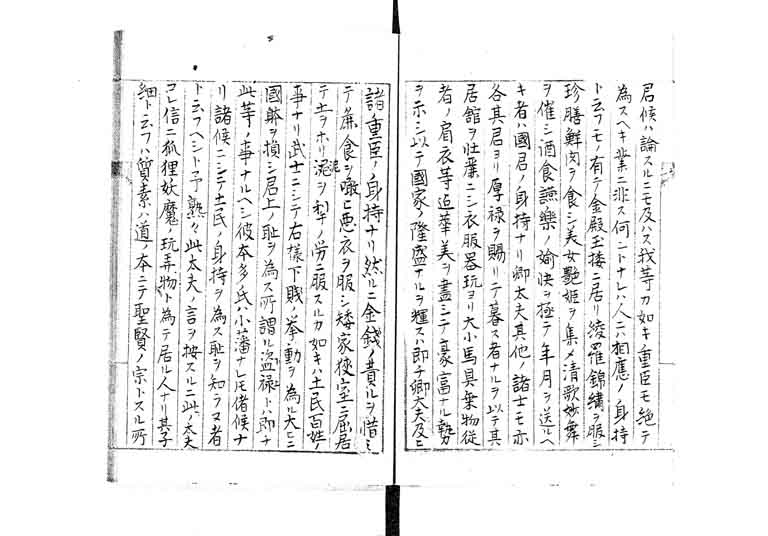 君侯ハ論スルニモ及ハス我等カ如キ重臣モ絶テ
為スヘキ業ニ非ス何ントナレハ人ニハ相應ノ身持
ト云フモノ有テ金殿玉摟ニ居リ綾羅錦繍ヲ服シ
珍膳鮮肉ヲ食シ美女艶姫ヲ集メ清歌妙舞
ヲ催シ酒食讌樂ノ愉快ヲ極テ年月ヲ送ルヘ
キ者ハ國君ノ身持ナリ卿太夫其他ノ諸士モ亦
各其君ヨリ厚禄ヲ賜リテ暮ス者ナルヲ以テ其
居館ヲ壮麗ニシ衣服器玩ヨリ大小馬具乗物従
者ノ肩衣等迠華美ヲ盡シテ豪富ナル勢
ヲ示シ以テ國家ノ隆盛ナルヲ輝スハ即チ卿大夫及ヒ
諸重臣ノ身持ナリ然ルニ金錢ノ費ルヲ惜ミ
テ麁食ヲ噉ヒ悪衣ヲ服シ矮家狹室ニ屈居
テ土ヲホリ泥ヲ利ノ労ニ服スルカ如キハ土民百姓ノ
事ナリ武士ニシテ右様下賤ノ挙動ヲ為ル大ヒニ
國躰ヲ損シ君上ノ耻ヲ為ス所謂ル盗禄トハ即チ
此等ノ事ナルヘシ彼本多氏ハ小藩ナレ𪜈諸候ナ
リ諸候ニシテ土民ノ身持ヲ為ス耻ヲ知ラマ者
ト云フヘシト予熟々此太夫ノ言ヲ按スルニ此ノ太夫
コレ信ニ狐狸妖魔ノ玩弄物ト為テ居ル人ナリ其子
細ト云フハ質素ハ道ノ本ニテ聖賢ノ宗トスル所